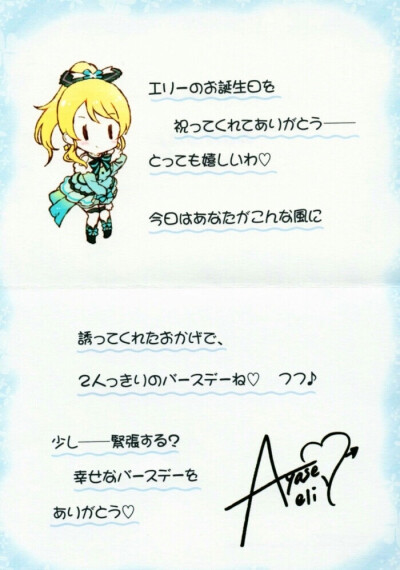 エリーのお誕生日を
祝ってくれてありがとう——
とっても嬉しいわ♡
今日はあなたがこんな風に
誘ってくれたおかげで、
2人っきりのバースデーね♡ フフ♪
少し——緊張する?
幸せなバースデーを
ありがとう♡
Ayase
eli